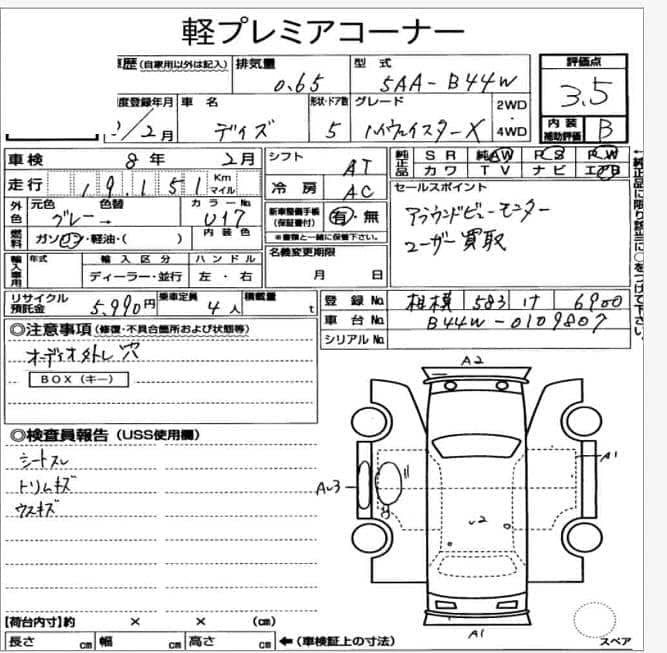 軽プレミアコーナー
車歴 (自家用以外は記入) 排気量 0.65 型式 5AA-B44W 評価点 3.5
年度登録年月 2月 車名 デイズ 形状・ドア数 5 グレード ハイウェイスターX 2WD・4WD 内装補助評価 B
車検 8年 2月 シフト AT 純正品 SR 純AW PS PW
走行 19151 Km マイル 冷房 AC カワ TV ナビ エアB
外色 元色 グレー 色替 カラーNo U17 内装色 新車整備手帳(保証書付) 有・無 セールスポイント
燃料 ガソリン・軽油・( ) ※書類と一緒に保管下さい。
アラウンドビューモニター
ユーザー買取
輸入車用 年式 輸入区分 ハンドル 名義変更期限
ディーラー・並行 左・右 月 日
リサイクル預託金 5,990円 乗車定員 4人 積載量 t 登録No. 相模 583 け 6900
車台No. B44W-0109807
シリアルNo.
◎注意事項 (修復・不具合箇所および状態等)
オーディオ外トレ穴
BOX(キー)
◎検査員報告 (USS使用欄)
シートスレ
トリムキズ
ウスキズ
A2
A1
AU3
U2
A1
スペア
【荷台内寸】約 × × (cm)
長さ cm 幅 cm 高さ cm ←(車検証上の寸法)
←純正品に限り該当に○をつけて下さい。